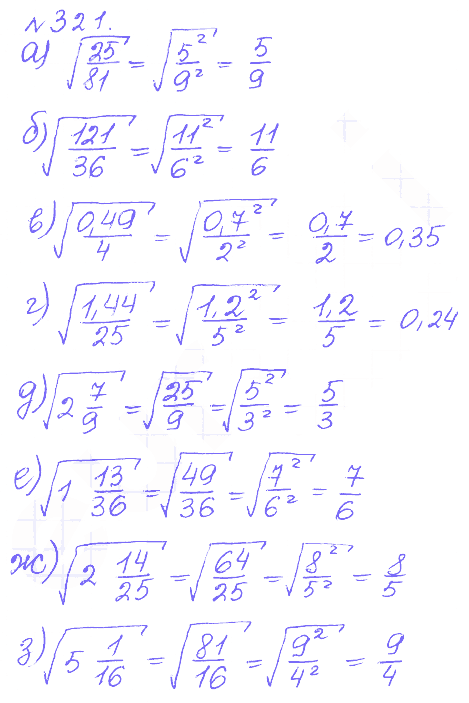 №321.
а) √(25/81) = √(5²/9²) = 5/9
б) √(121/36) = √(11²/6²) = 11/6
в) √(0,49/4) = √(0,7²/2²) = 0,7/2 = 0,35
г) √(1,44/25) = √(1,2²/5²) = 1,2/5 = 0,24
д) √(2 7/9) = √(25/9) = √(5²/3²) = 5/3
е) √(1 13/36) = √(49/36) = √(7²/6²) = 7/6
ж) √(2 14/25) = √(64/25) = √(8²/5²) = 8/5
з) √(5 1/16) = √(81/16) = √(9²/4²) = 9/4